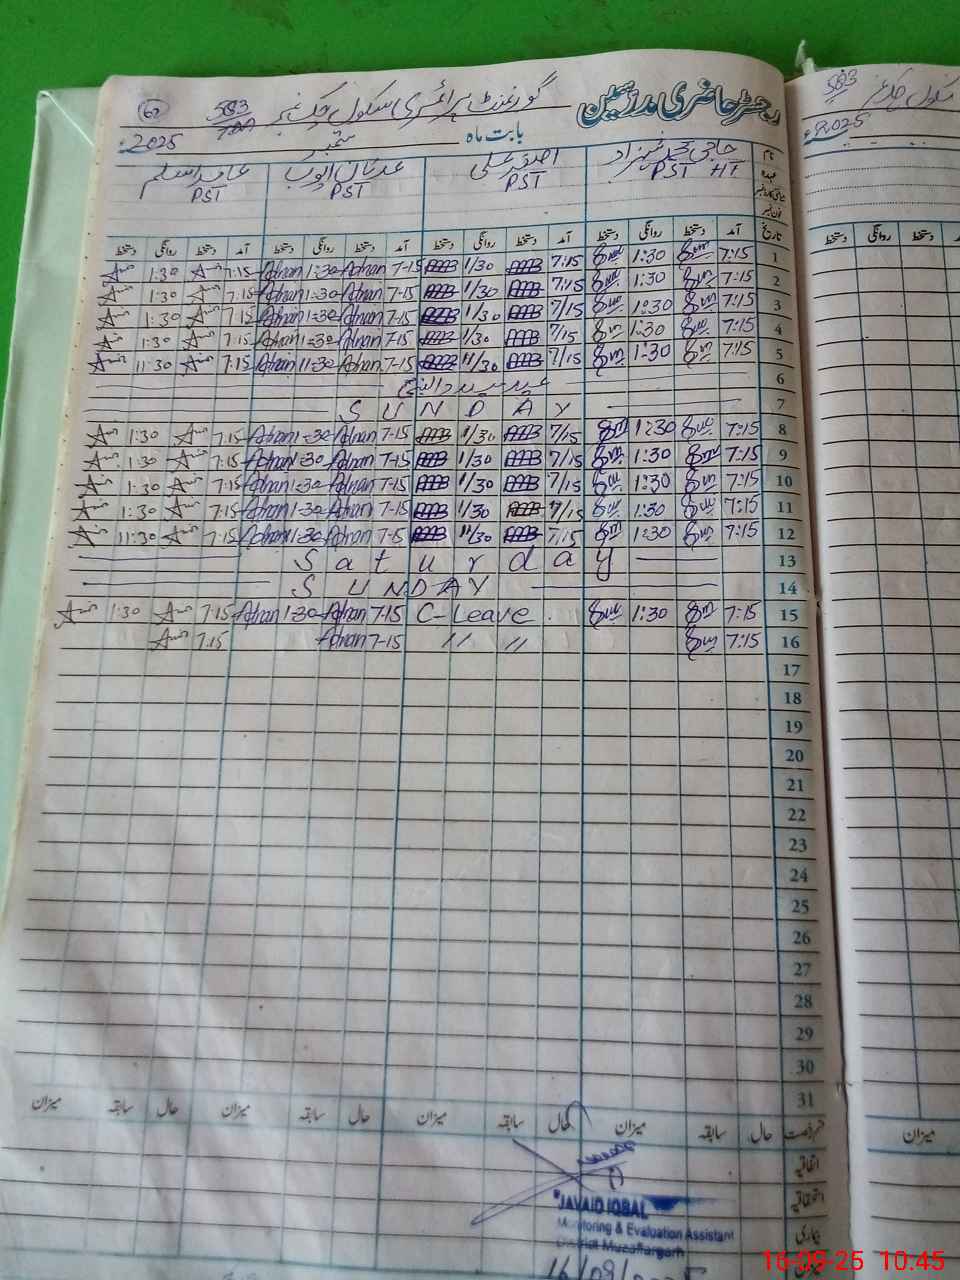 رجسٹر حاضری مدرسین گورنمنٹ پرائمری سکول چک نمبر 583 62
بابت ماہ ستمبر 2025ء
نام حاجی محمد شہزاد اصغر علی عدنان ایوب عابد اسلم
عہدہ PST HT PST PST PST
تاریخ آمد دستخط روانگی دستخط آمد دستخط روانگی دستخط آمد دستخط روانگی دستخط آمد دستخط روانگی دستخط
1 7:15 1:30 7/15 1/30 7-15 Adnan 1:30 Adnan 7:15 1:30
2 7:15 1:30 7/15 1/30 7-15 Adnan 1-30 Adnan 7:15 1:30
3 7:15 1:30 7/15 1/30 7-15 Adnan 1-30 Adnan 7:15 1:30
4 7:15 1:30 7/15 1/30 7-15 Adnan 1-30 Adnan 7:15 1:30
5 7:15 1:30 7/15 11/30 7-15 Adnan 11-30 Adnan 7:15 11:30
6 عید میلاد النبی
7 SUNDAY
8 7:15 1:30 7/15 1/30 7-15 Adnan 1-30 Adnan 7:15 1:30
9 7:15 1:30 7/15 1/30 7-15 Adnan 1-30 Adnan 7:15 1:30
10 7:15 1:30 7/15 1/30 7-15 Adnan 1-30 Adnan 7:15 1:30
11 7:15 1:30 7/15 1/30 7-15 Adnan 1-30 Adnan 7:15 1:30
12 7:15 1:30 7/15 11/30 7-15 Adnan 11-30 Adnan 7:15 11:30
13 Saturday
14 SUNDAY
15 7:15 1:30 C-Leave 7-15 Adnan 1-30 Adnan 7:15 1:30
16 7:15 // // 7-15 Adnan 7:15
17
18
19
20
21
22
23
24
25
26
27
28
29
30
31
حال سابقہ میزان حال سابقہ میزان حال سابقہ میزان حال سابقہ میزان
اتفاقیہ
استحقاقیہ
بیماری
JAVAID IQBAL
Monitoring & Evaluation Assistant
District Muzaffargarh
16/09/
583
2025ء
دستخط روانگی دستخط
میزان
16-09-25 10.45